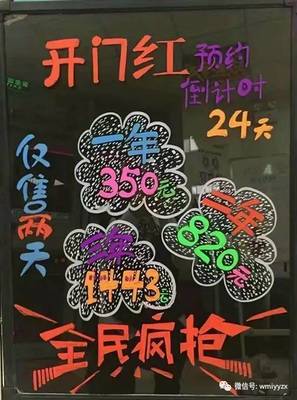 开门红
预约
倒计时
24天
仅售两天
一年
350元
二年
820元
三年
1443元
全民疯抢
微信号: wmiyyzx